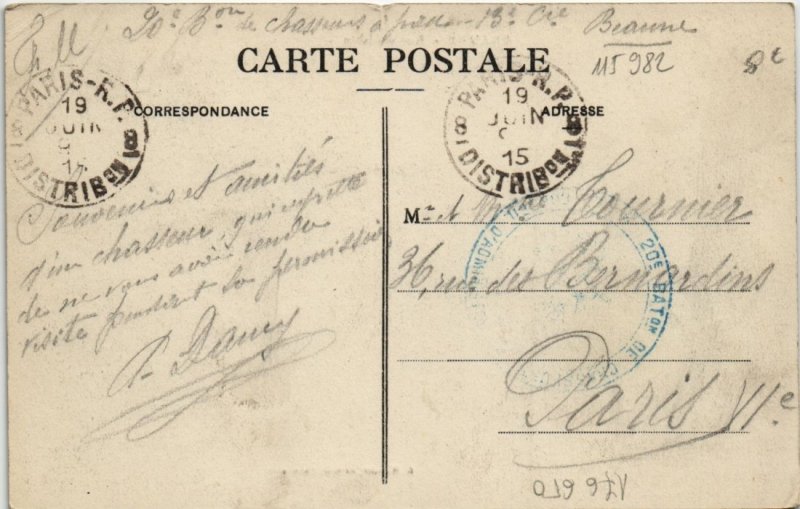 F.M.
20e Bon de chasseurs à pied 13e Cie Beaune
CARTE POSTALE
115982
8e
PARIS-R.P.
19
JUIN
15
DISTRIBon
8
8
PARIS-R.P.
19
JUIN
9
15
DISTRIBon
8
8
CORRESPONDANCE
ADRESSE
Souvenirs et amitiés
d'un chasseur, qui regrette
de ne vous avoir rendu
visite pendant sa permission
P. Dancy
Mr & Mme Tournier
36, rue des Bernardins
Paris
20E BATon DE
176650